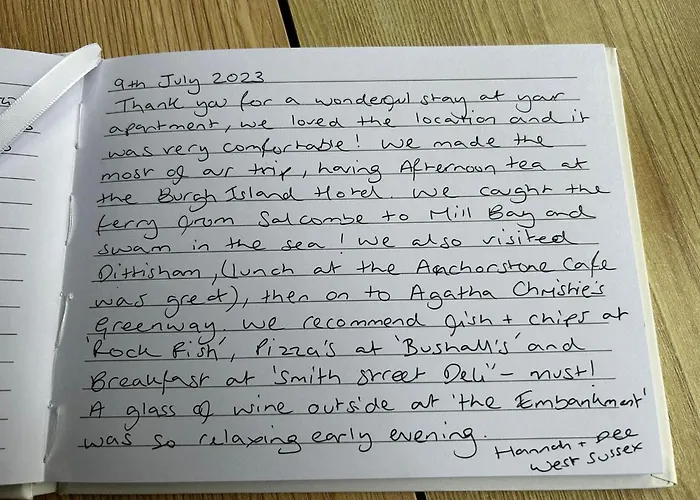 9th July 2023
Thank you for a wonderful stay at your
apartment, we loved the location and it
was very comfortable! We made the
most of our trip, having Afternoon tea at
the Burgh Island Hotel. We caught the
ferry from Salcombe to Mill Bay and
swam in the sea! We also visited
Dittisham, (lunch at the Anchorstone Cafe
was great), then on to Agatha Christie's
Greenway. We recommend fish + chips at
'Rock Fish', Pizza's at 'Bushall's' and
Breakfast at 'Smith Street Deli" - must!
A glass of wine outside at 'the Embankment'
was so relaxing early evening.
Hannah + Dee
West Sussex